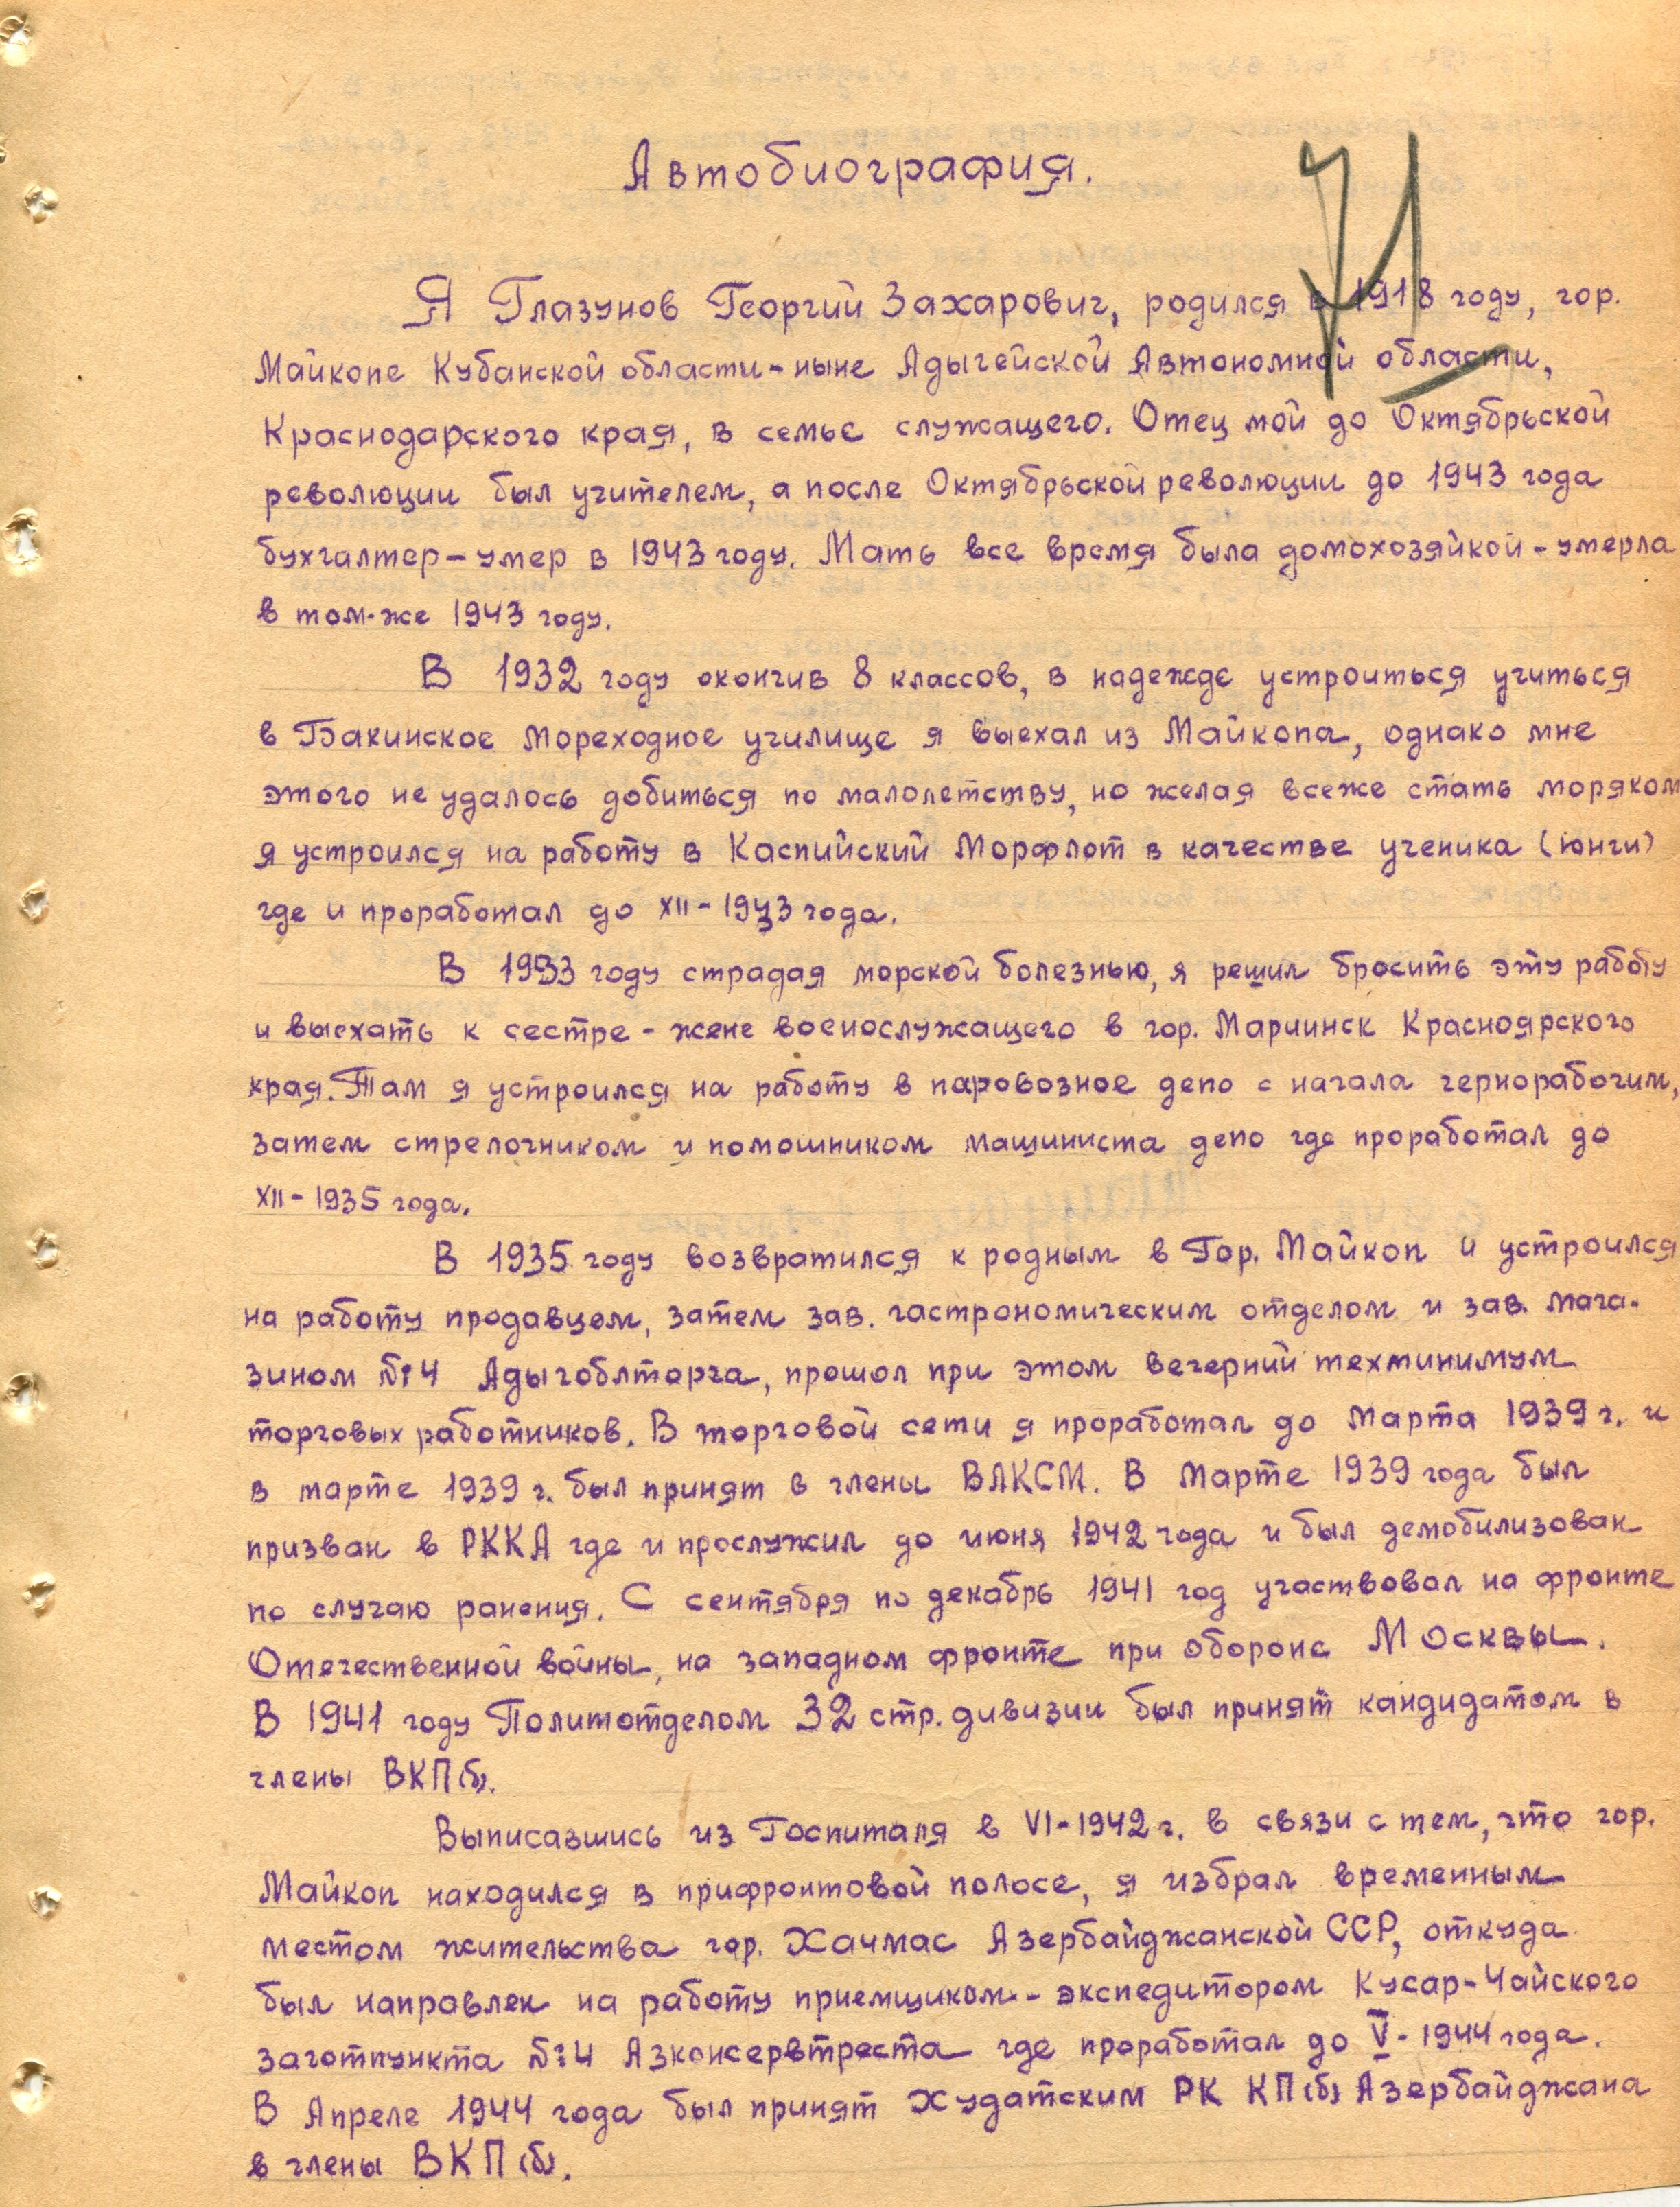 Автобиография.
Я Глазунов Георгий Захарович, родился в 1918 году, гор.
Майкопе Кубанской области - ныне Адыгейской Автономной области,
Краснодарского края, в семье служащего. Отец мой до Октябрьской
революции был учителем, а после Октябрьской революции до 1943 года
бухгалтер - умер в 1943 году. Мать все время была домохозяйкой - умерла
в том-же 1943 году.
В 1932 году окончив 8 классов, в надежде устроиться учиться
в Бакинское мореходное училище я выехал из Майкопа, однако мне
этого не удалось добиться по малолетству, но желая всеже стать моряком
я устроился на работу в Каспийский Морфлот в качестве ученика (юнги)
где и проработал до XII - 1933 года.
В 1933 году страдая морской болезнью, я решил бросить эту работу
и выехать к сестре - жене военослужащего в гор. Мариинск Красноярского
края. Там я устроился на работу в паровозное депо с начала чернорабочим,
затем стрелочником и помошником машиниста депо где проработал до
XII - 1935 года.
В 1935 году возвратился к родным в Гор. Майкоп и устроился
на работу продавцом, затем зав. гастрономическим отделом и зав. мага-
зином №4 Адыгоблторга, прошол при этом вечерний техминимум
торговых работников. В торговой сети я проработал до марта 1939 г. и
в марте 1939 г. был принят в члены ВЛКСМ. В марте 1939 года был
призван в РККА где и прослужил до июня 1942 года и был демобилизован
по случаю ранения. С сентября по декабрь 1941 год участвовал на фронте
Отечественной войны, на западном фронте при обороне Москвы.
В 1941 году Политотделом 32 стр. дивизии был принят кандидатом в
члены ВКП(б).
Выписавшись из Госпиталя в VI - 1942 г. в связи с тем, что гор.
Майкоп находился в прифронтовой полосе, я избрал временным
местом жительства гор. Хачмас Азербайджанской ССР, откуда
был направлен на работу приемщиком - экспедитором Кусар-Чайского
заготпункта №4 Азконсервтреста где проработал до V - 1944 года.
В Апреле 1944 года был принят Худатским РК КП(б) Азербайджана
в члены ВКП(б).